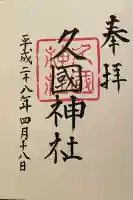 奉拝
久國神社
平成二十八年四月十八日